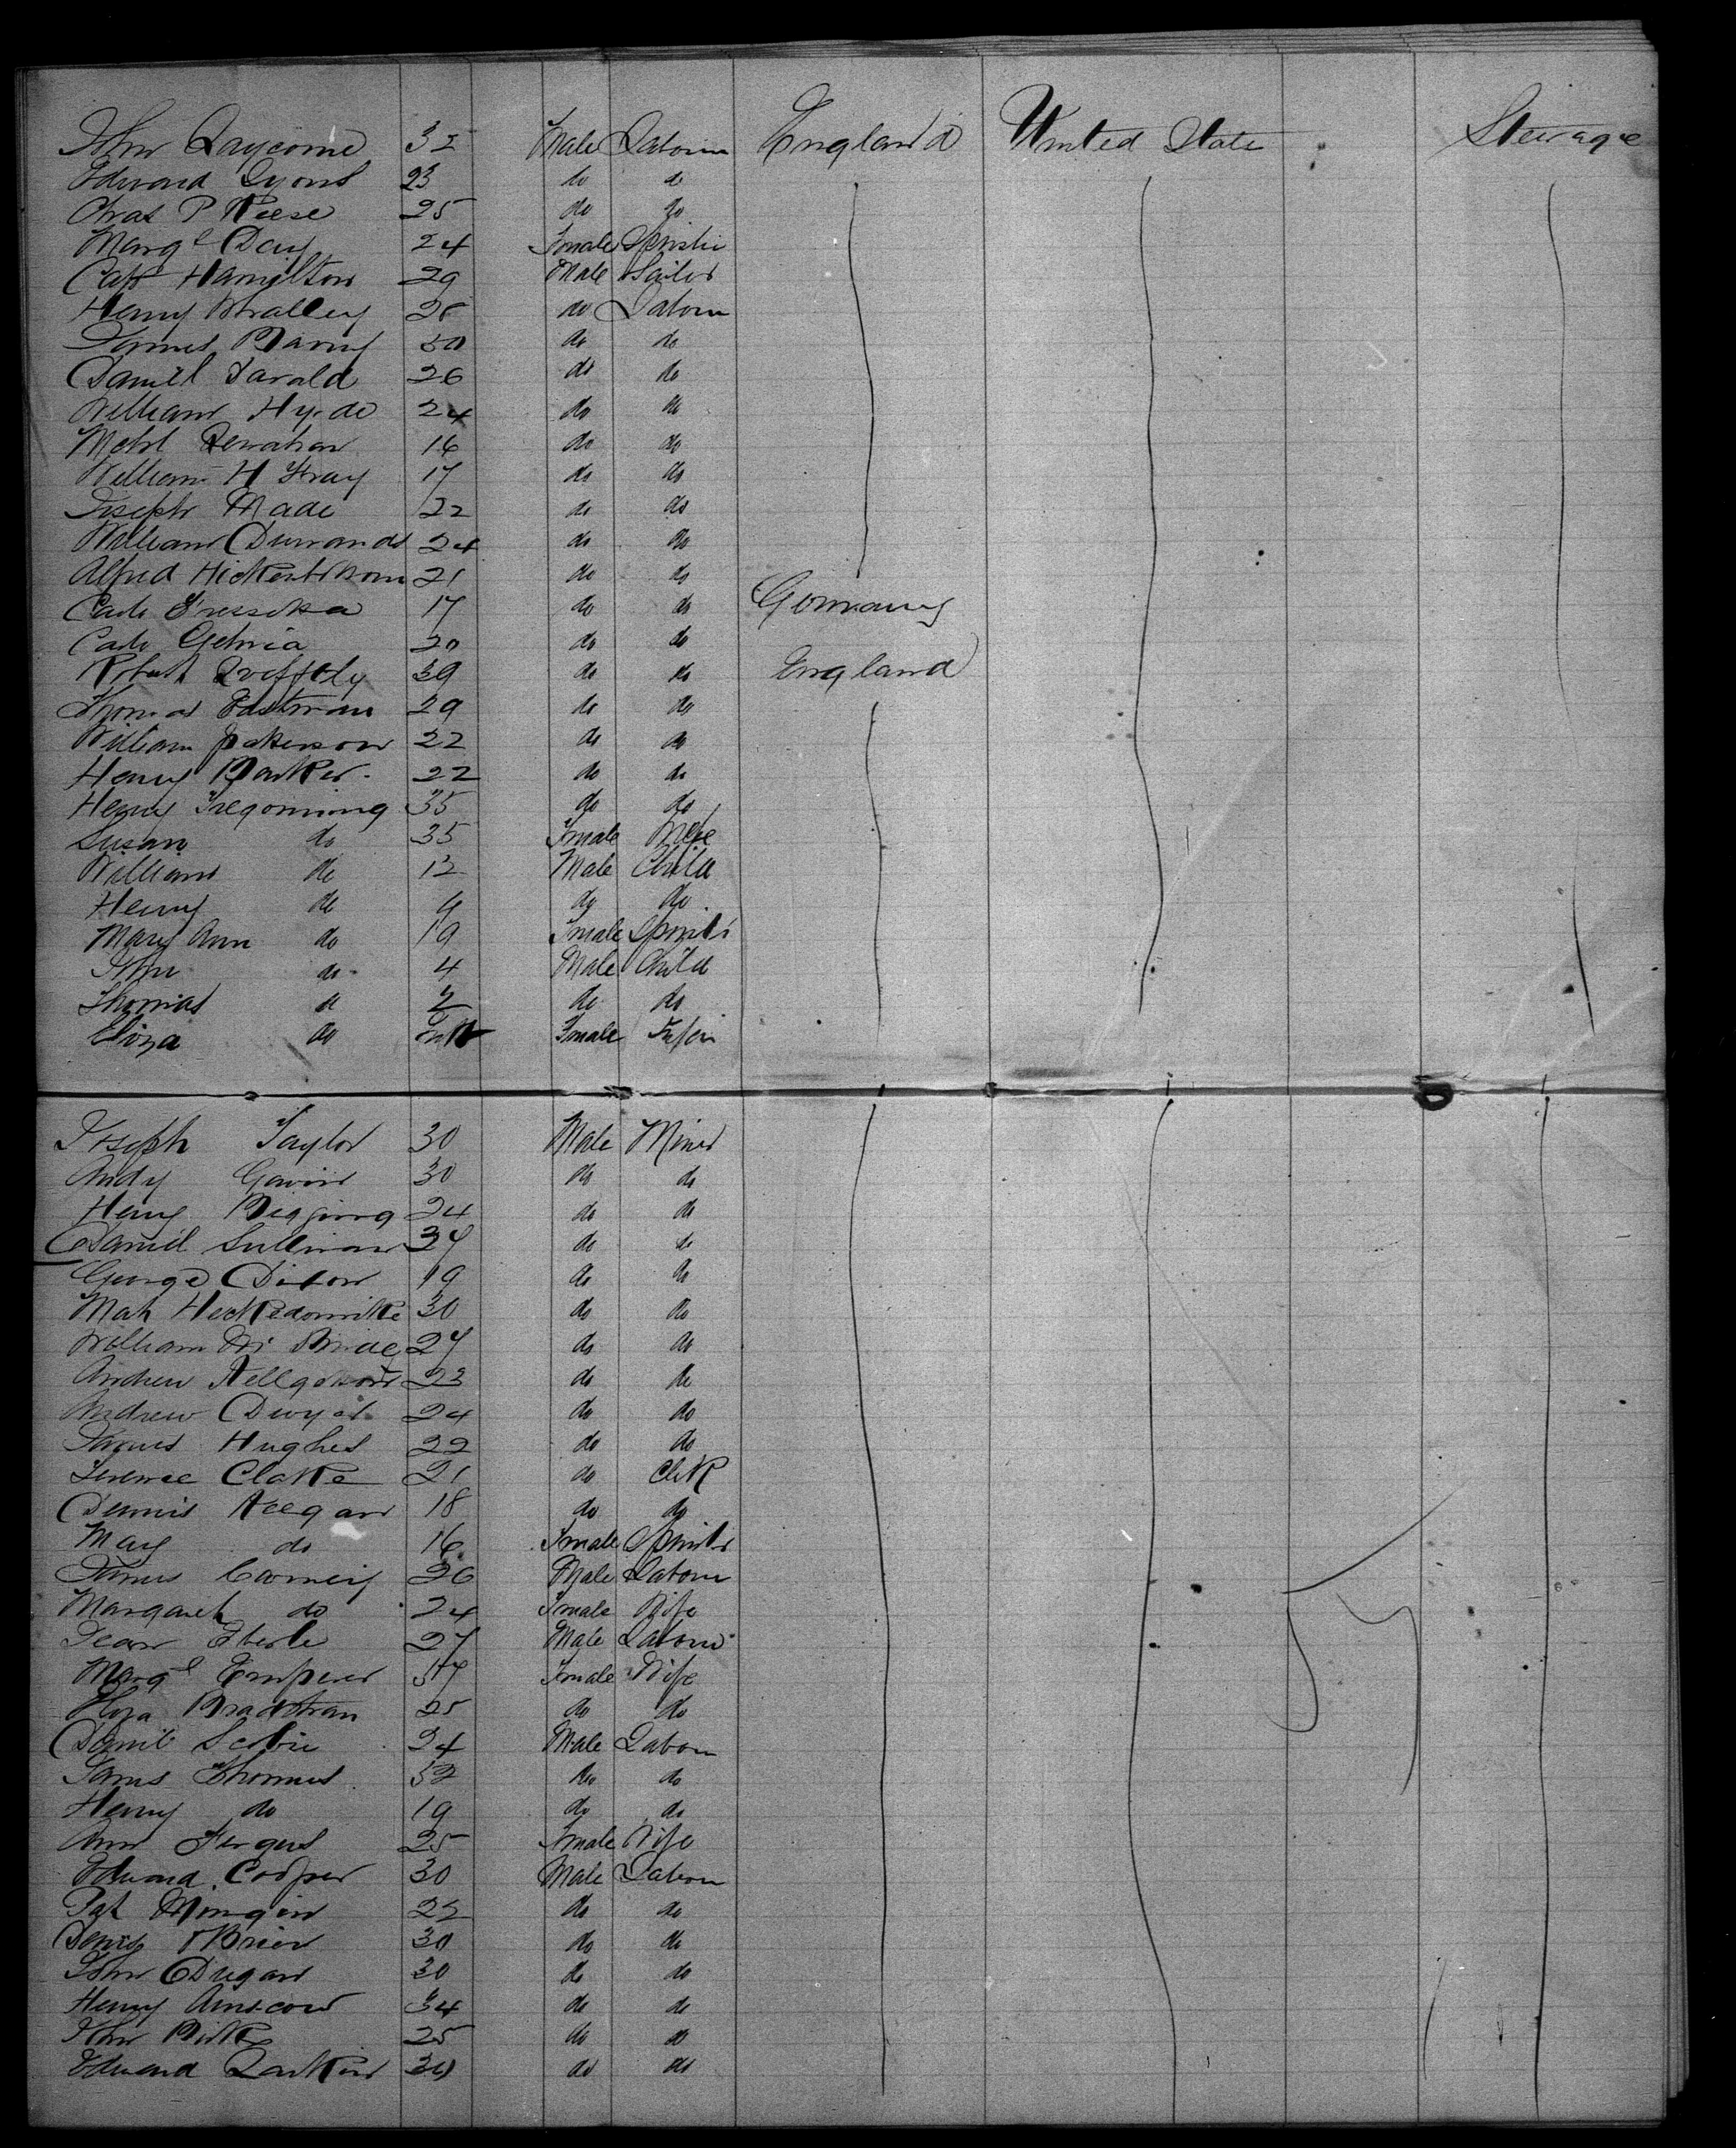 John Laycome 32 Male Labour England United State Steerage
Edward Lyons 23 do do
Chas P Reese 25 do do
Margt Day 24 Female Spinster
Capt Hamilton 29 Male Sailor
Henry Whalley 28 do Labour
James Barry 50 do do
Daniel Farald 26 do do
William Hyde 24 do do
Michl Lenahan 16 do do
William H Gray 17 do do
Joseph Wade 22 do do
William Durrands 24 do do
Alfred 21 do do
Carlo 17 do do Germany
Carlo 20 do do
Robert 39 do do England
Thomas Eastman 29 do do
William 22 do do
Henry Barker 22 do do
Henry Tregonning 35 do do
Susan do 35 Female Wife
William do 12 Male Child
Henry do 9 do do
Mary Ann do 19 Female Spinstr
John do 4 Male Child
Thomas do 2 do do
Eliza do Inft Female Infan
Joseph Taylor 30 Male Miner
Andy Gavin 30 do do
Henry Higgins 24 do do
Daniel Sullivan 37 do do
George Dixon 19 do do
Mah 30 do do
William Mc Bride 27 do do
Andrew 23 do do
Andrew Dwyer 24 do do
James Hughes 22 do do
Terence Clarke 21 do Clerk
Dennis Keegan 18 do do
Mary do 16 Female Spinstr
James 26 Male Labour
Margaret do 24 Female Wife
Jean Eberle 27 Male Labour
Margt Emperor 57 Female Wife
Eliza 25 do do
Daniel Scobie 24 Male Labour
James Thomas 52 do do
Henry do 19 do do
Ann Fergus 25 Female Wife
Edward Cooper 30 Male Labour
Pat Mongin 22 do do
Denis OBrien 30 do do
John Dugan 30 do do
Henry Ainscow 34 do do
John Birks 25 do do
Edward Larkin 30 do do